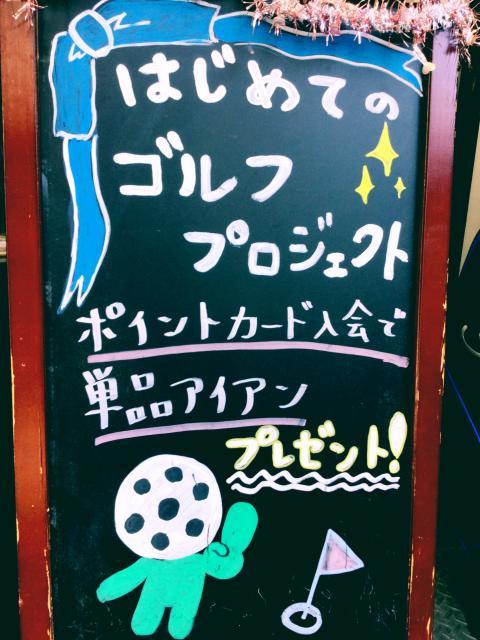 はじめての
ゴルフ
プロジェクト
ポイントカード入会で
単品アイアン
プレゼント!